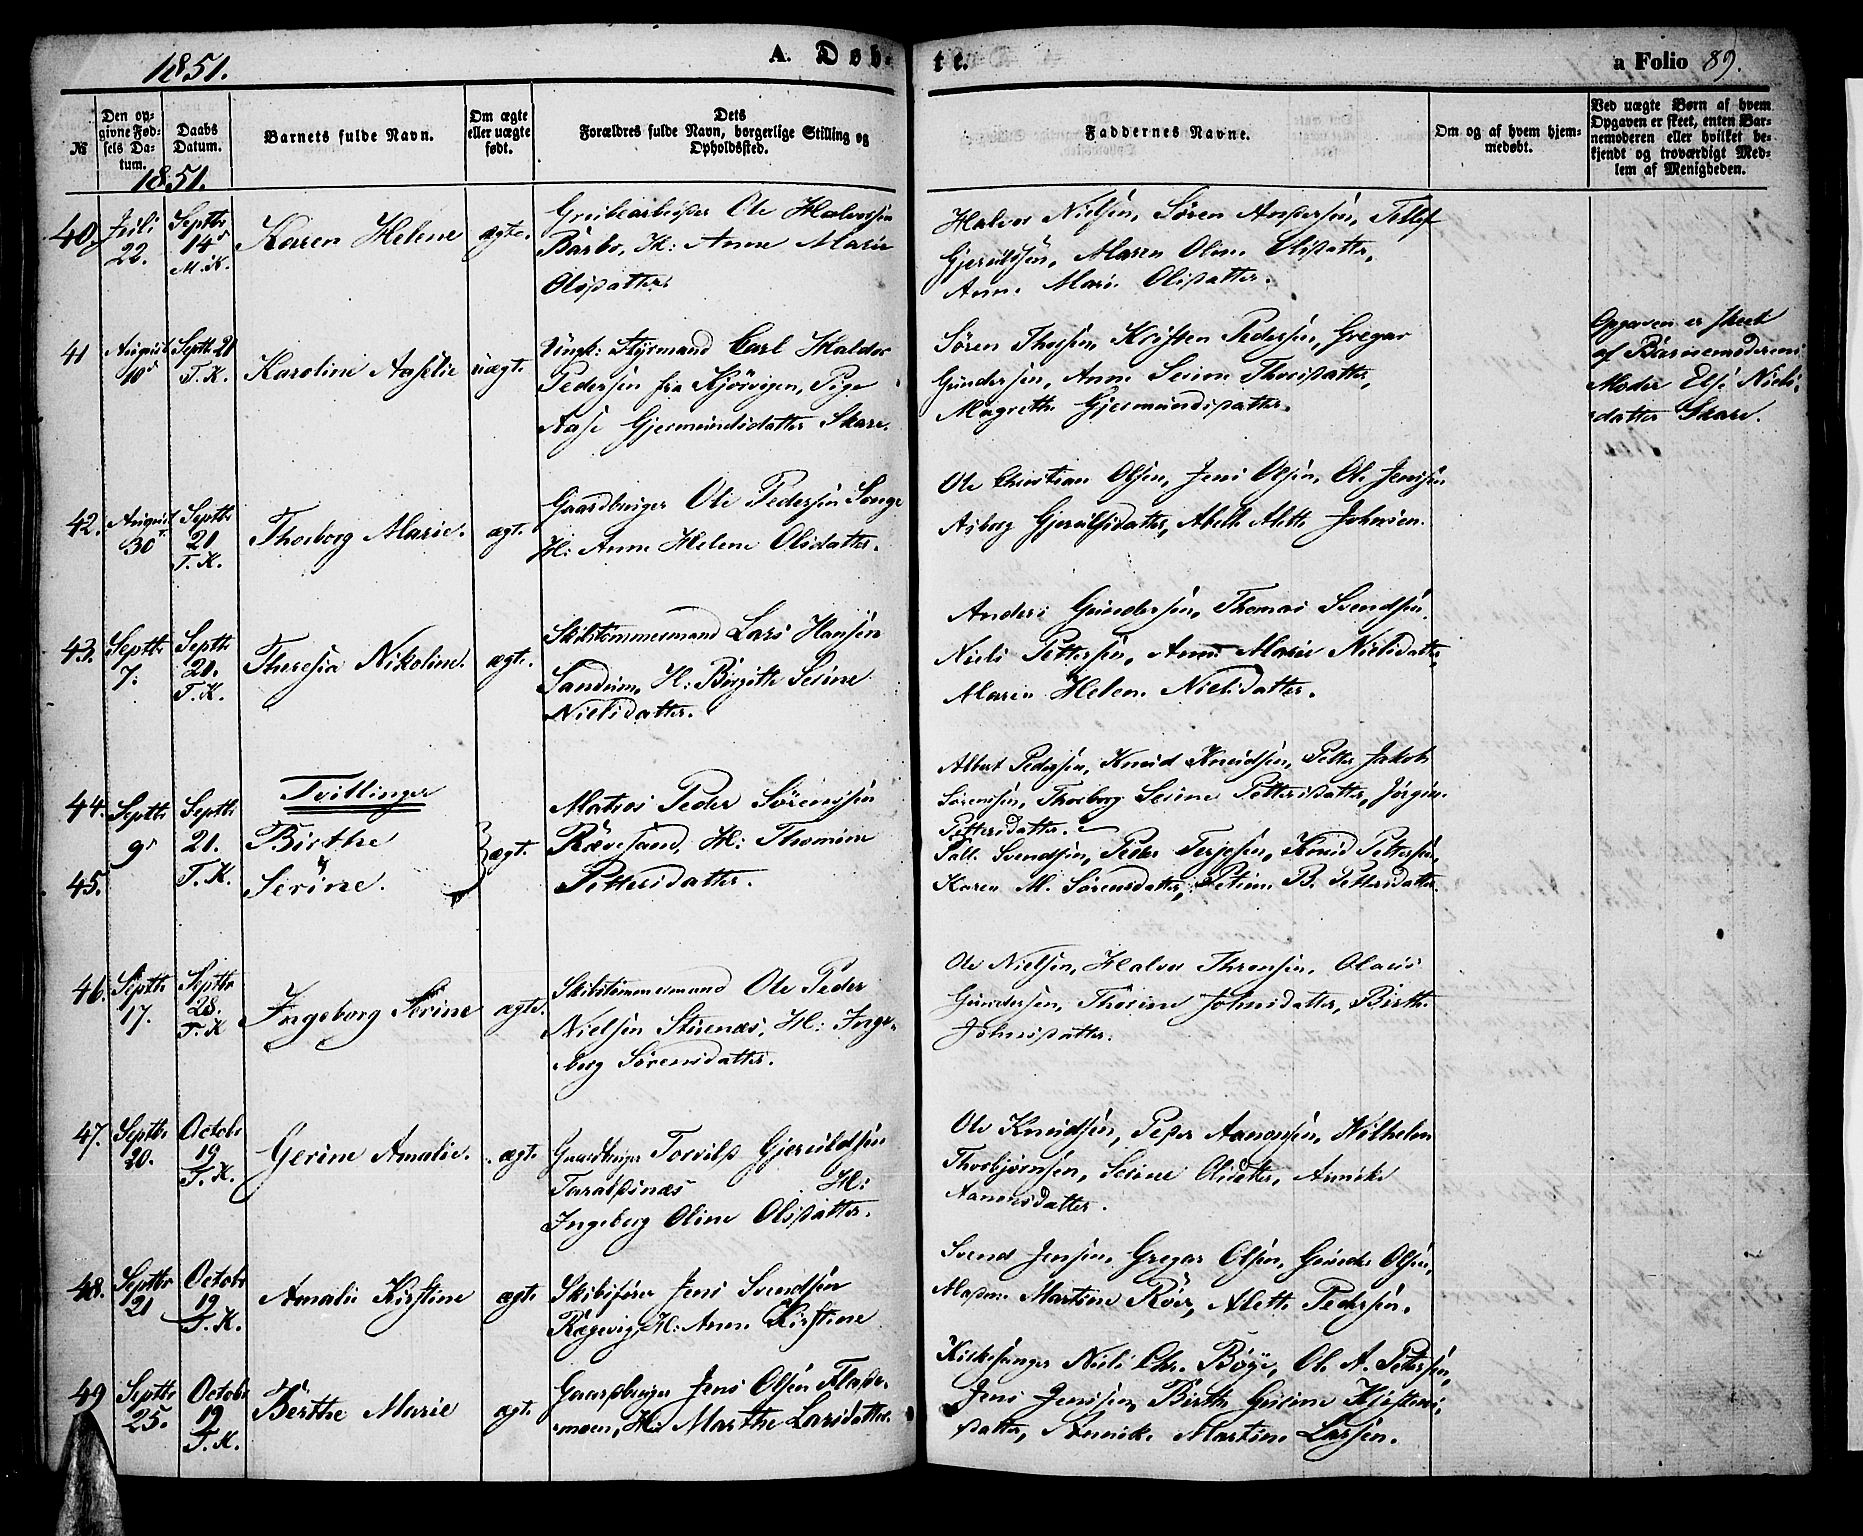 1851.
A. Døb-
te.
a Folio 89.
№
Den op-
givne Fød-
sels Da-
tum.
Daabs
Datum.
Barnets fulde Navn.
Om ægte
eller uægte
født.
Dets
Forældres fulde Navn, borgerlige Stilling og
Opholdssted.
Faddernes Navne.
Om og af hvem hjem-
medøbt.
Ved uægte Børn af hvem
Opgaven er skeet, enten Bar-
nemoderen eller hvilket be-
kjendt og troværdigt Med-
lem af Menigheden.
1851.
40.
Juli
22.
Septbr
14
M.K.
Karen Helene
ægte.
Grubearbeider Ole Halvorsen
Barbo, H: Anne Marie
Olsdatter.
Halvor Nielsen, Søren Andersen, Tellef
Gjeruldsen, Maren Oline Olsdatter,
Anne Marie Olsdatter.
41
August
10
Septbr 21
T.K.
Karoline Aaselie
uægte
Ungk: Styrmand Carl Haldor
Pedersen fra Kjörvigen, Pige
Aase Gjermundsdatter Skare.
Søren Thorsen, Kristen Pedersen, Gregar
Gundersen, Anne Serine Thorsdatter,
Magrethe Gjermundsdatter.
Opgaven er skeet
af Barnemoderens
Moder Else Niels-
datter Skare.
42.
August
30
Septbr
21
T.K.
Thorborg Marie.
ægt.
Gaardbruger Ole Pedersen Songe
H: Anne Helene Olsdatter.
Ole Christian Olsen, Jens Olsen, Ole Jenssen
Asborg Gjerulfsdatter, Aleth Alette Johnsen.
43.
Septbr
7.
Septbr
21.
T.K.
Theresia Nikoline.
ægt.
Skibstømmermand Lars Hansen
Sandum, H: Birgitte Serine
Nielsdatter.
Anders Gundersen, Thomas Svendsen,
Niels Pettersen, Anne Marie Nielsdatter,
Maren Helene Nielsdatter.
44.
45.
Septbr
9
Septbr
21.
T.K.
Tvillinger
Birthe
&
Serine.
ægt.
Matros Peder Sørenssen
Rævesand, H: Thomine
Pettersdatter.
Albert Pedersen, Knud Knudsen, Petter Jakob
Sørenssen, Thorborg Serine Pettersdatter, Jørgine
Pettersdatter.
Tall. Svendsen, Peder Terjesen, Knud Pettersen,
Karen M. Sørensdatter, Petrine B. Pettersdatter
46.
Septbr
17.
Septbr
28.
T.K
Ingeborg Serine
ægte.
Skibstømmermand Ole Peder
Nielsen Stuenæs, H: Inge-
borg Sørensdatter.
Ole Nielsen, Halvor Thronsen, Olaus
Gundersen, Thorine Johnsdatter, Birthe
Johnsdatter.
47.
Septbr
20.
Octobr
19
T.K.
Gerine Amalie.
ægt.
Gaardbruger Torvild Gjeruldsen
Taraldsnæs H:
Ingeborg Oline Olsdatter.
Ole Knudsen, Peder Aanonsen, Wilhelm
Thorbjørnsen, Serine Olsdatter, Annike
Aanonsdatter.
48.
Septbr
21
Octobr
19
T.K.
Amalie Kirstine
ægt.
Skibsfører Jens Svendsen
Rægevig, H: Anne Kirstine
Svend Jensen, Gregar Olsen, Gunder Olsen,
Madame Martine Röer, Alette Pedersen.
49
Septbr
25.
Octobr
19
T.K.
Berthe Marie
ægt.
Gaardbruger Jens Olsen Flade-
moen, H: Marthe Larsdatter
Kirkesanger Niels Chr. Bøye, Ole A. Pedersen,
Jens Jenssen, Birthe Gurine Kjøstens-
datter, Annike Martine Larsen.